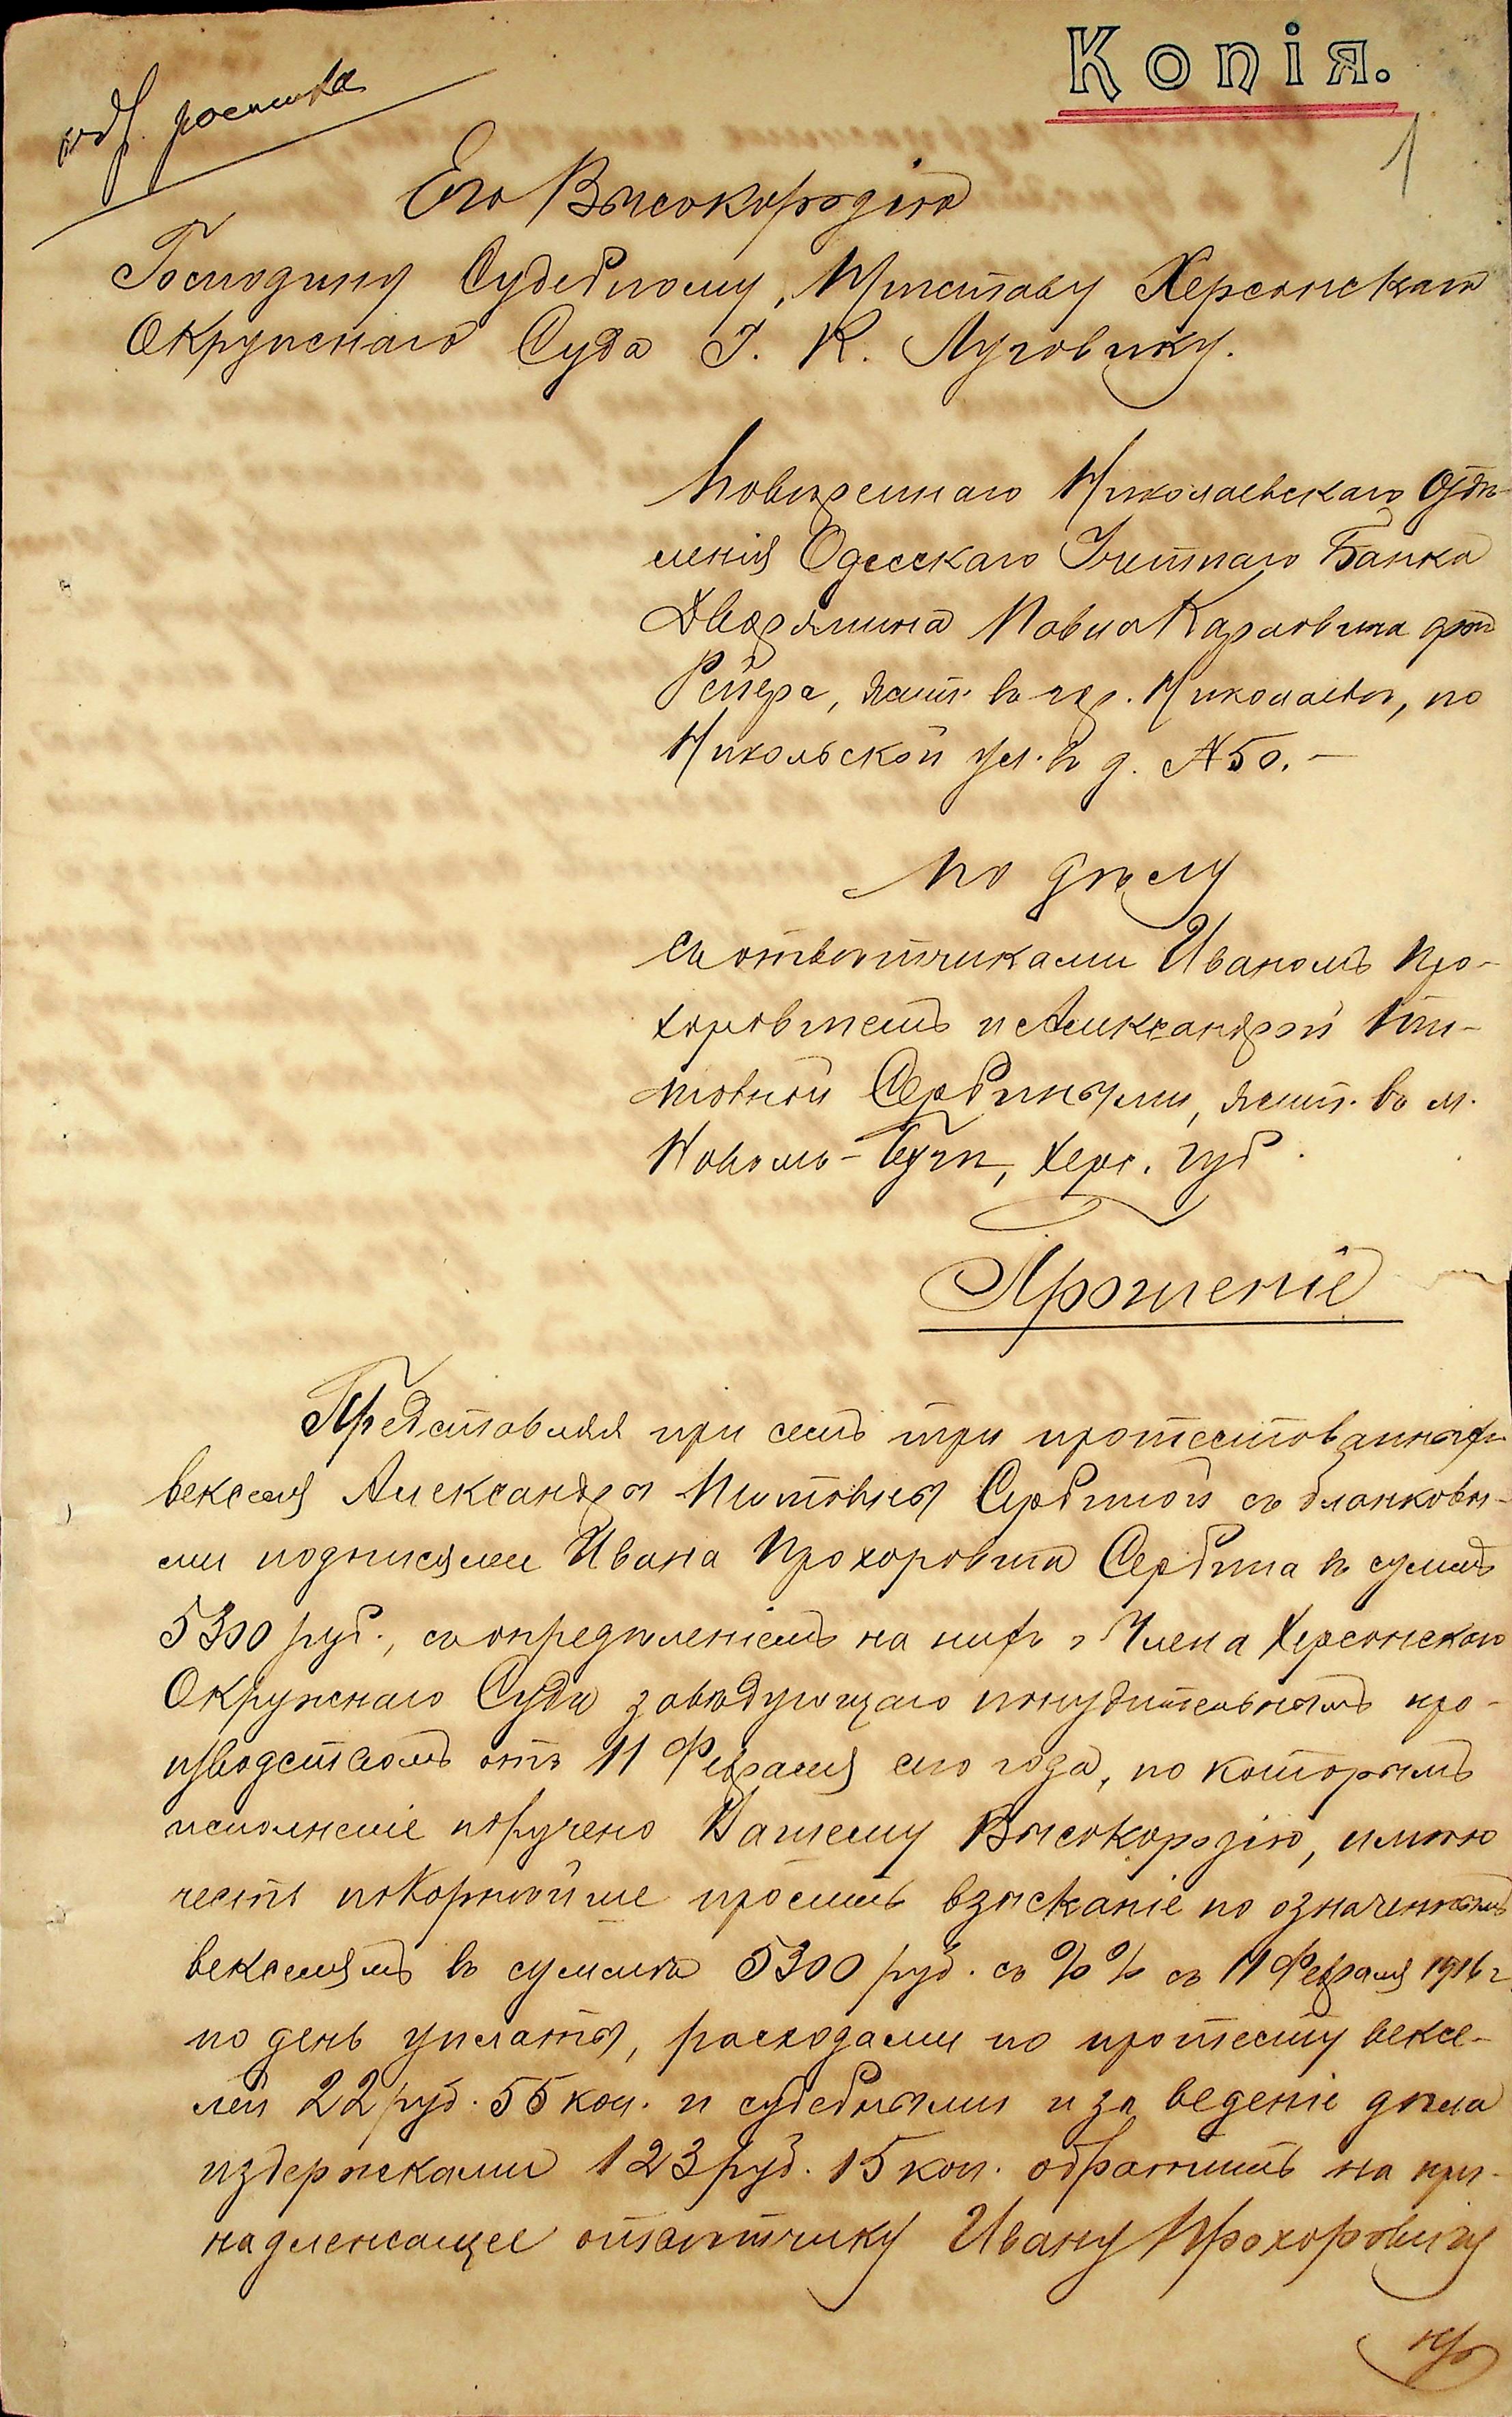 Копія.
1
росписка
Его Высокородію
Господину Судебному Приставу Херсонскаго
Окружнаго Суда І. К. Луговику.
Повѣреннаго Николаевскаго Отдѣ-
ленія Одесскаго Учетнаго Банка
Дворянина Павла Карловича фон
Рейера, жит. въ гор. Николаевѣ, по
Никольской ул. въ д. №50. —
По дѣлу
съ отвѣтчиками Иваномъ Про-
хоровичемъ и Александрой
Сербиными, жит. въ м.
Новомъ-Бугѣ, Херс. губ.
Прошеніе
Представляя при семъ три протестованныхъ
векселя Александры Сербиной съ бланковы-
ми подписями Ивана Прохоровича Сербина въ суммѣ
5300 руб., съ опредѣленіемъ на нихъ г. Члена Херсонскаго
Окружнаго Суда завѣдующаго понудительнымъ про-
изводствомъ отъ 11 Февраля сего года, по которымъ
исполненіе поручено Вашему Высокородію, имѣю
честь покорнѣйше просить взысканіе по означеннымъ
векселямъ въ суммѣ 5300 руб. съ %% съ 11 Февраля 1916 г.
по день уплаты, расходами по протесту вексе-
лей 22 руб. 55 коп. и судебными и за веденіе дѣла
издержками 123 руб. 15 коп. обратить на при-
надлежащее отвѣтчику Ивану Прохоровичу